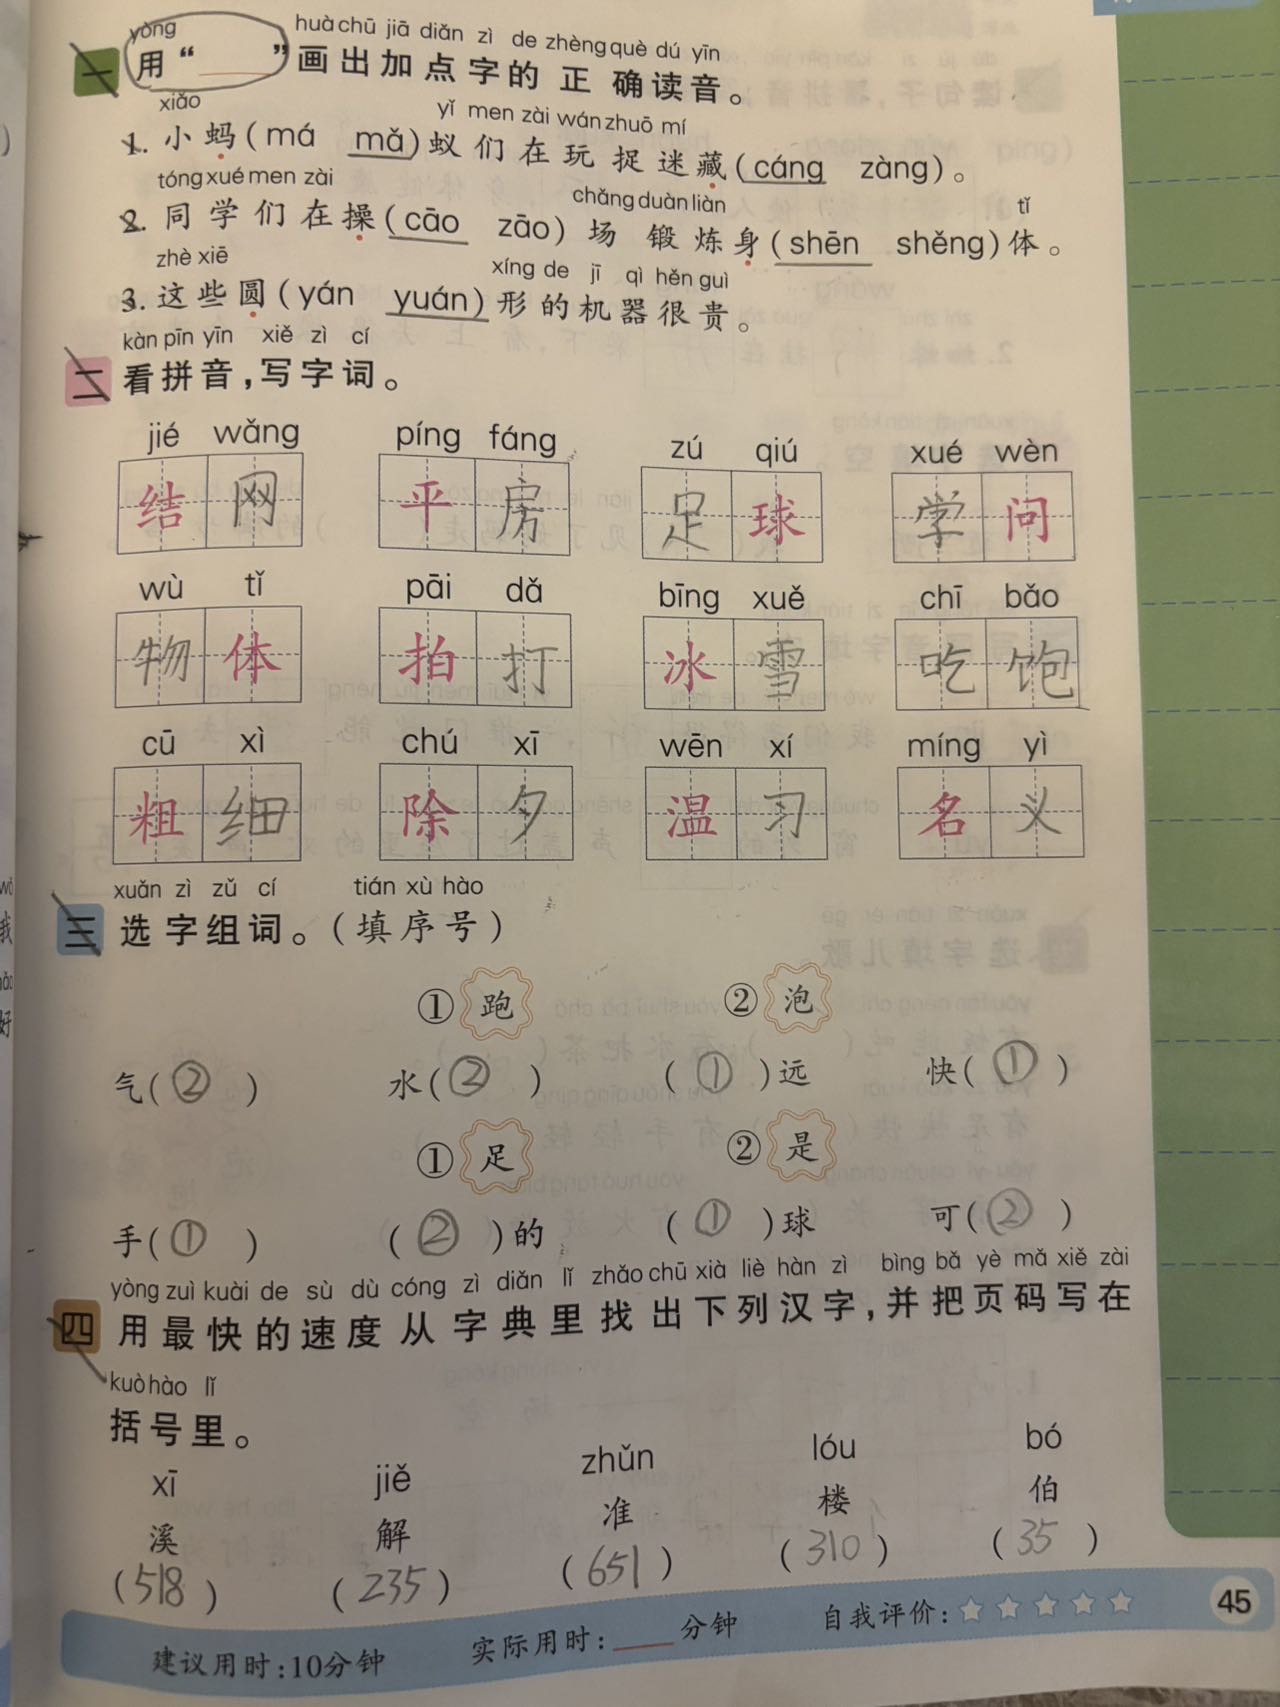 yòng huà chū jiā diǎn zì de zhèng què dú yīn
一 用“____”画出加点字的正确读音。
xiǎo yǐ men zài wán zhuō mí
1. 小蚂(má mǎ)蚁们在玩捉迷藏(cáng zàng)。
tóng xué men zài chǎng duàn liàn tǐ
2. 同学们在操(cāo zāo)场锻炼身(shēn shěng)体。
zhè xiē xíng de jī qì hěn guì
3. 这些圆(yán yuán)形的机器很贵。
kàn pīn yīn xiě zì cí
二 看拼音,写字词。
jié wǎng píng fáng zú qiú xué wèn
结网 平房 足球 学问
wù tǐ pāi dǎ bīng xuě chī bǎo
物体 拍打 冰雪 吃饱
cū xì chú xī wēn xí míng yì
粗细 除夕 温习 名义
xuǎn zì zǔ cí tián xù hào
三 选字组词。(填序号)
① 跑 ② 泡
气(②) 水(②) (①)远 快(①)
① 足 ② 是
手(①) (②)的 (①)球 可(②)
yòng zuì kuài de sù dù cóng zì diǎn lǐ zhǎo chū xià liè hàn zì bìng bǎ yè mǎ xiě zài
四 用最快的速度从字典里找出下列汉字,并把页码写在
kuò hào lǐ
括号里。
xī jiě zhǔn lóu bó
溪 解 准 楼 伯
(518) (235) (651) (310) (35)
建议用时:10分钟 实际用时:____分钟 自我评价:☆☆☆☆☆ 45